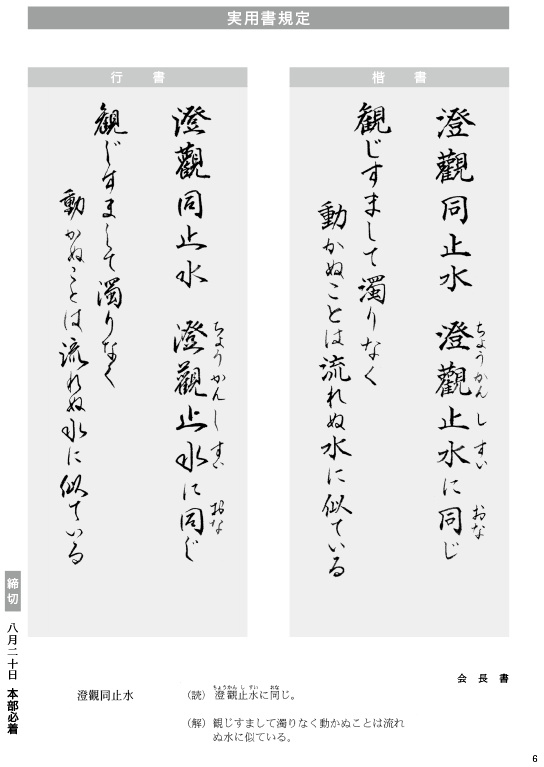 実用書規定
楷書
澄觀同止水　澄觀止水に同じ
ちょうかん し すい おな
観じすまして濁りなく
動かぬことは流れぬ水に似ている
行書
澄觀同止水　澄觀止水に同じ
ちようかん し すい おな
観じすまして濁りなく
動かぬことは流れぬ水に似ている
会長書
締切
八月二十日 本部必着
澄觀同止水
ちょうかん し すい おな
（読）澄觀止水に同じ。
（解）観じすまして濁りなく動かぬことは流れ
ぬ水に似ている。
6